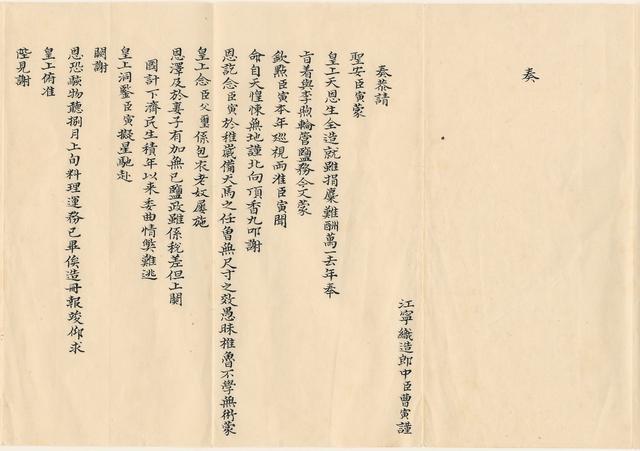 奏
江寧織造郎中臣曹寅謹
奏恭請
聖安臣寅蒙
皇上天恩生全造就雖捐糜難酬萬一去年奉
旨着與李煦輪管鹽務今又蒙
欽點臣寅本年巡視兩淮臣寅聞
命自天惶悚無地謹北向頂香九叩謝
恩訖念臣寅於稚歲備犬馬之任曾無尺寸之效愚昧椎魯不學無術蒙
皇上念臣父璽係包衣老奴屢施
恩澤及於妻子有加無已鹽政雖係稅差但上關
國計下濟民生積年以來委曲情弊難逃
皇上洞鑒臣寅擬星馳赴
闕謝
恩恐駭物聽捌月上旬料理運務已畢俟造冊報竣仰求
皇上俯准
陛見謝